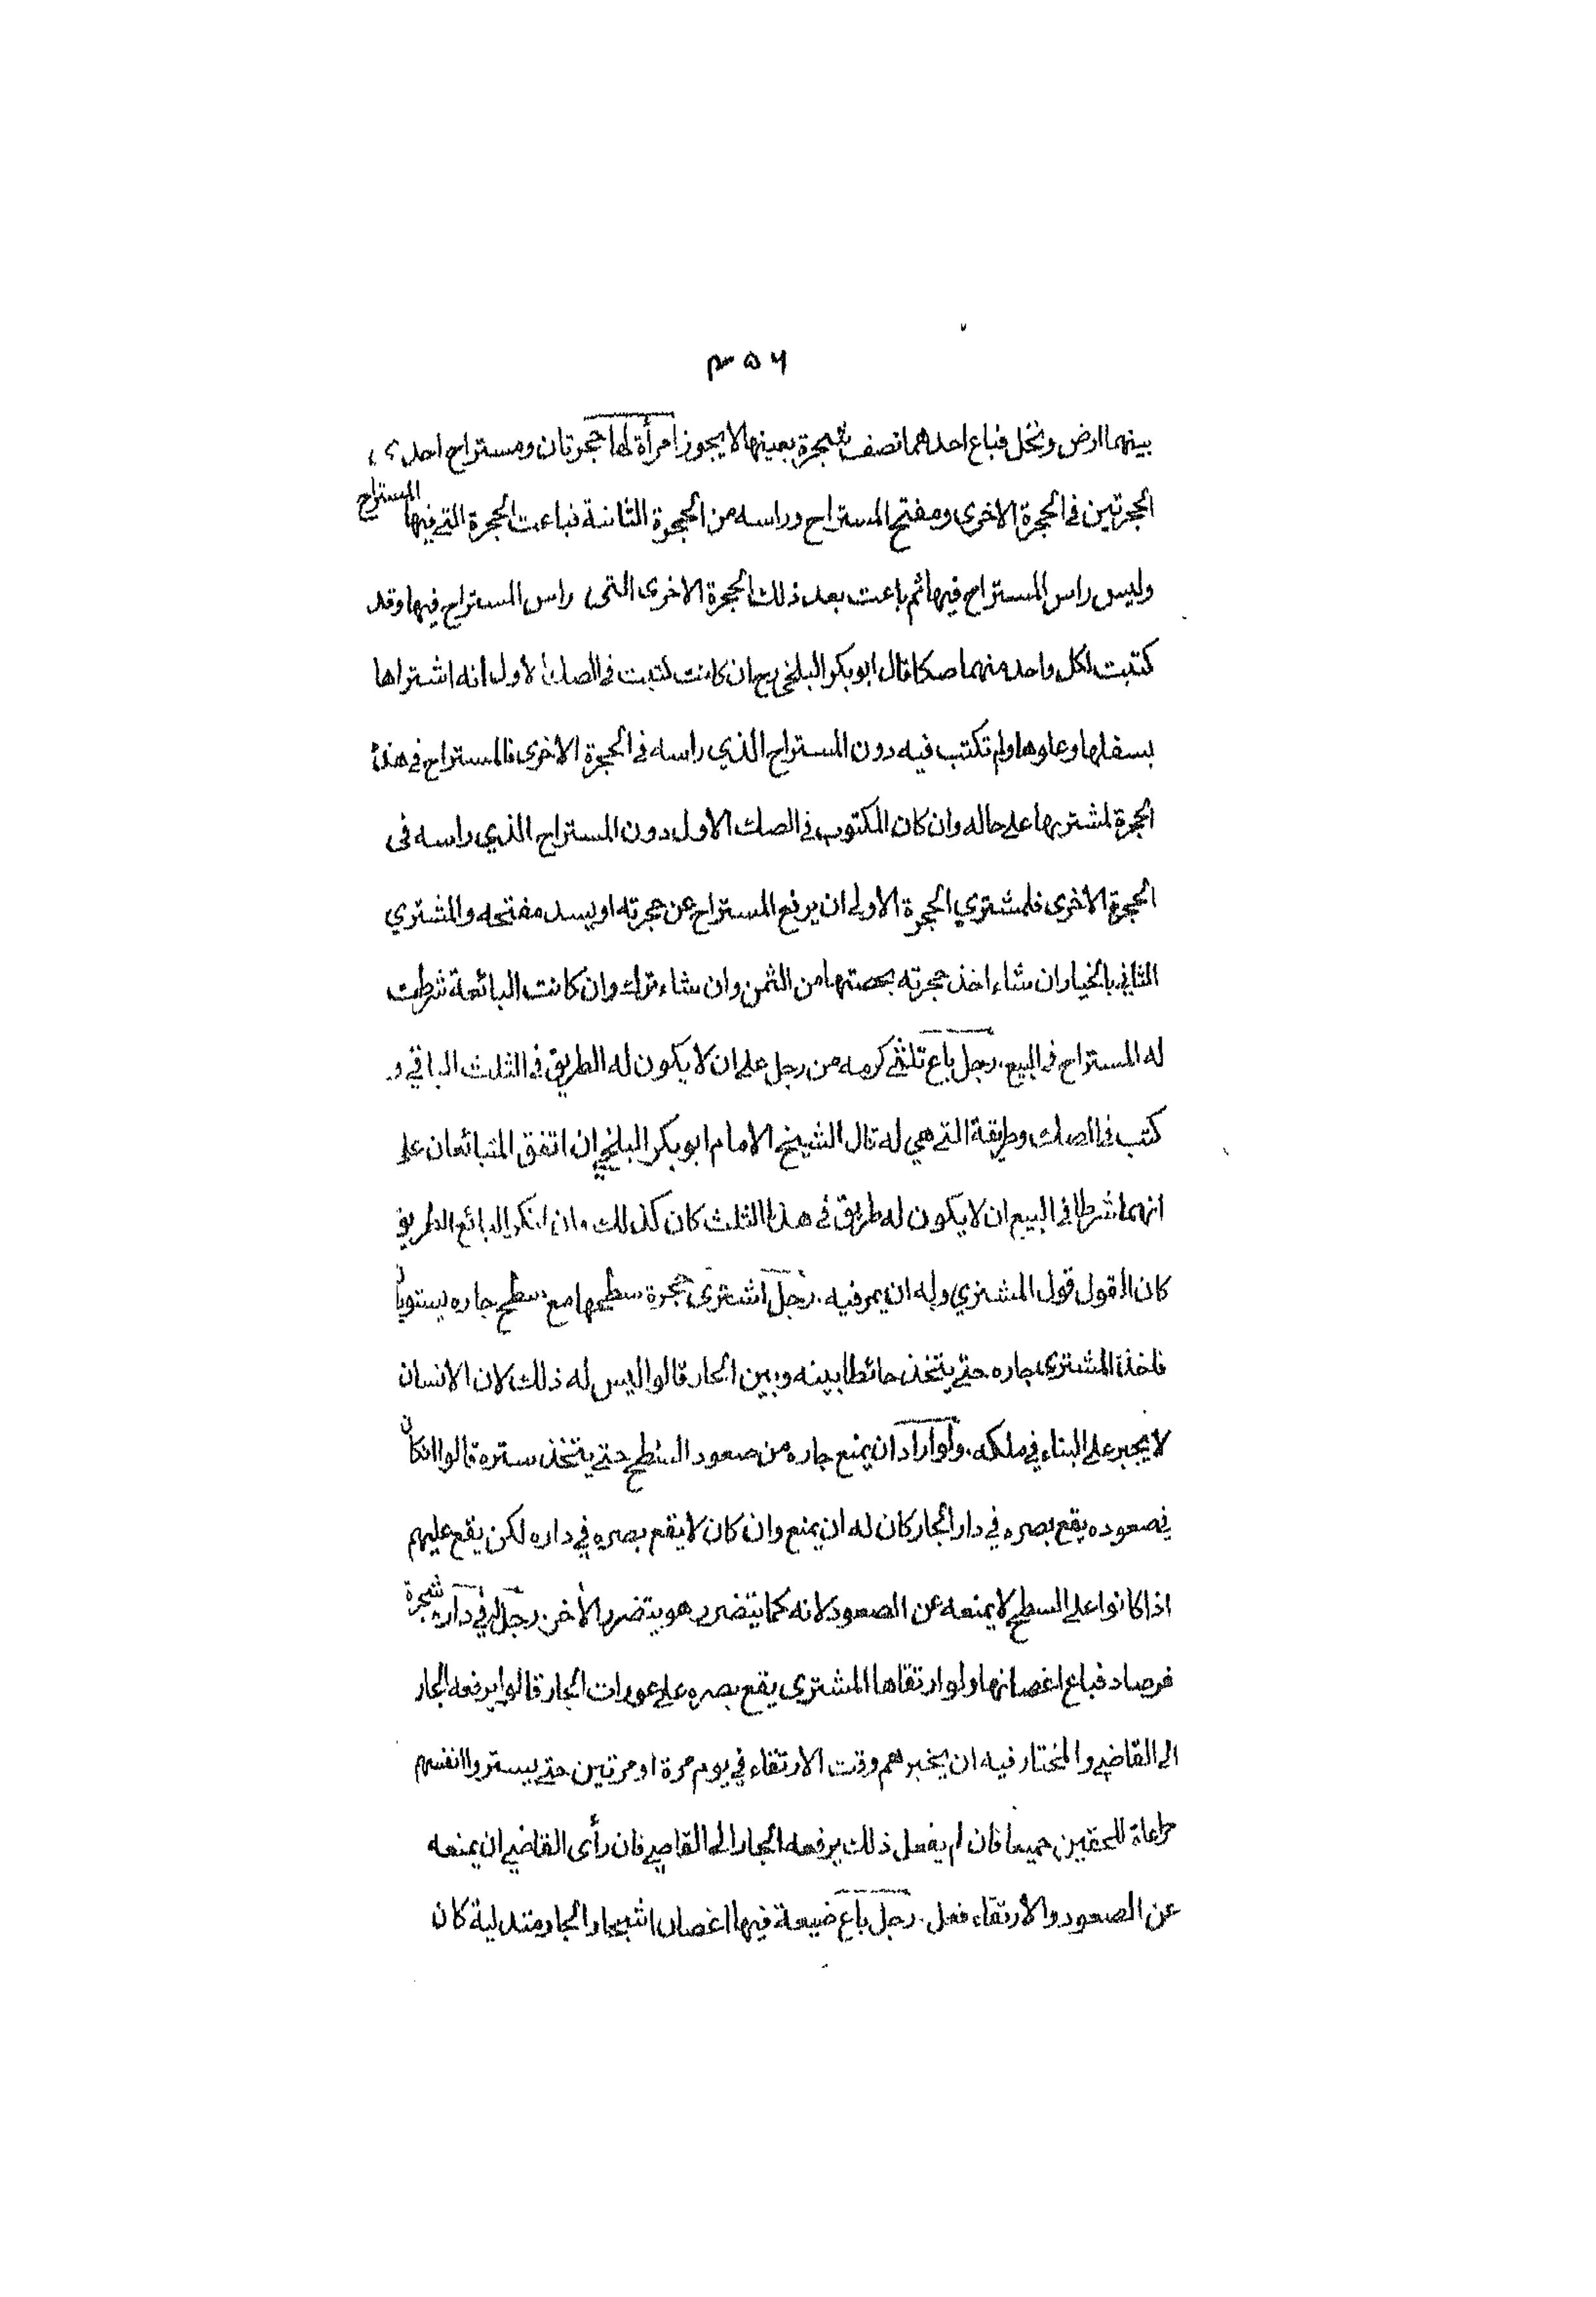 ٣٥٦
بينهما ارض ونخل فباع احدهما نصف شجرة بعينها لا يجوز امرأة لها حجرتان ومستراح احدى
الحجرتين في الحجرة الاخرى ومفتح المستراح وراسه من الحجرة الثانية فباعت الحجرة التي فيها المستراح
وليس راس المستراح فيها ثم باعت بعد ذلك الحجرة الاخرى التى راس المستراح فيها وقد
كتبت لكل واحد منهما صكا قال ابو بكر البلخي رح ان كانت كتبت في الصك الاول انه اشتراها
بسفلها وعلوها ولم تكتب فيه دون المستراح الذي راسه في الحجرة الاخرى فالمستراح في هذه
الحجرة لمشتريها على حاله وان كان المكتوب في الصك الاول دون المستراح الذي راسه فى
الحجرة الاخرى فلمشتري الحجرة الاولى ان يرفع المستراح عن حجرته او يسد مفتحه والمشتري
الثاني بالخيار ان شاء اخذ حجرته بحصتها من الثمن وان شاء ترك وان كانت البائعة شرطت
له المستراح في البيع. رجل باع ثلثي كرمه من رجل على ان لا يكون له الطريق في الثلث الباقي و
كتب في الصك وطريقة التي هي له قال الشيخ الامام ابو بكر البلخي ان اتفق المتبائعان على
انهما شرطا في البيع ان لا يكون له طريق في هذا الثلث كان كذلك وان انكر البائع الطريق
كان القول قول المشتري وله ان يمر فيه. رجل اشترى حجرة سطحها مع سطح جاره يستويان
فاخذ المشترى جاره حتى يتخذ حائطا بينه وبين الجار قالوا ليس له ذلك لان الانسان
لا يجبر على البناء في ملكه. ولو اراد ان يمنع جاره من صعود السطح حتى يتخذ سترة قالوا انكان
في صعوده يقع بصره في دار الجار كان له ان يمنع وان كان لا يقع بصره في داره لكن يقع عليهم
اذا كانوا على السطح لا يمنعه عن الصعود لانه كما يتضرر هو يتضرر الاخر. رجل له في داره شجرة
فرصاد فباع اغصانها ولو ارتقاها المشترى يقع بصره على عورات الجار قالوا يرفعه الجار
الى القاضي والمختار فيه ان يخبرهم وقت الارتقاء في يوم مرة او مرتين حتى يستروا انفسهم
مراعاة للحقين جميعا فان لم يفعل ذلك يرفعه الجار الى القاضي فان رأى القاضي ان يمنعه
عن الصعود والارتقاء فعل. رجل باع ضيعة فيها اغصان اشجار الجار متدلية كان